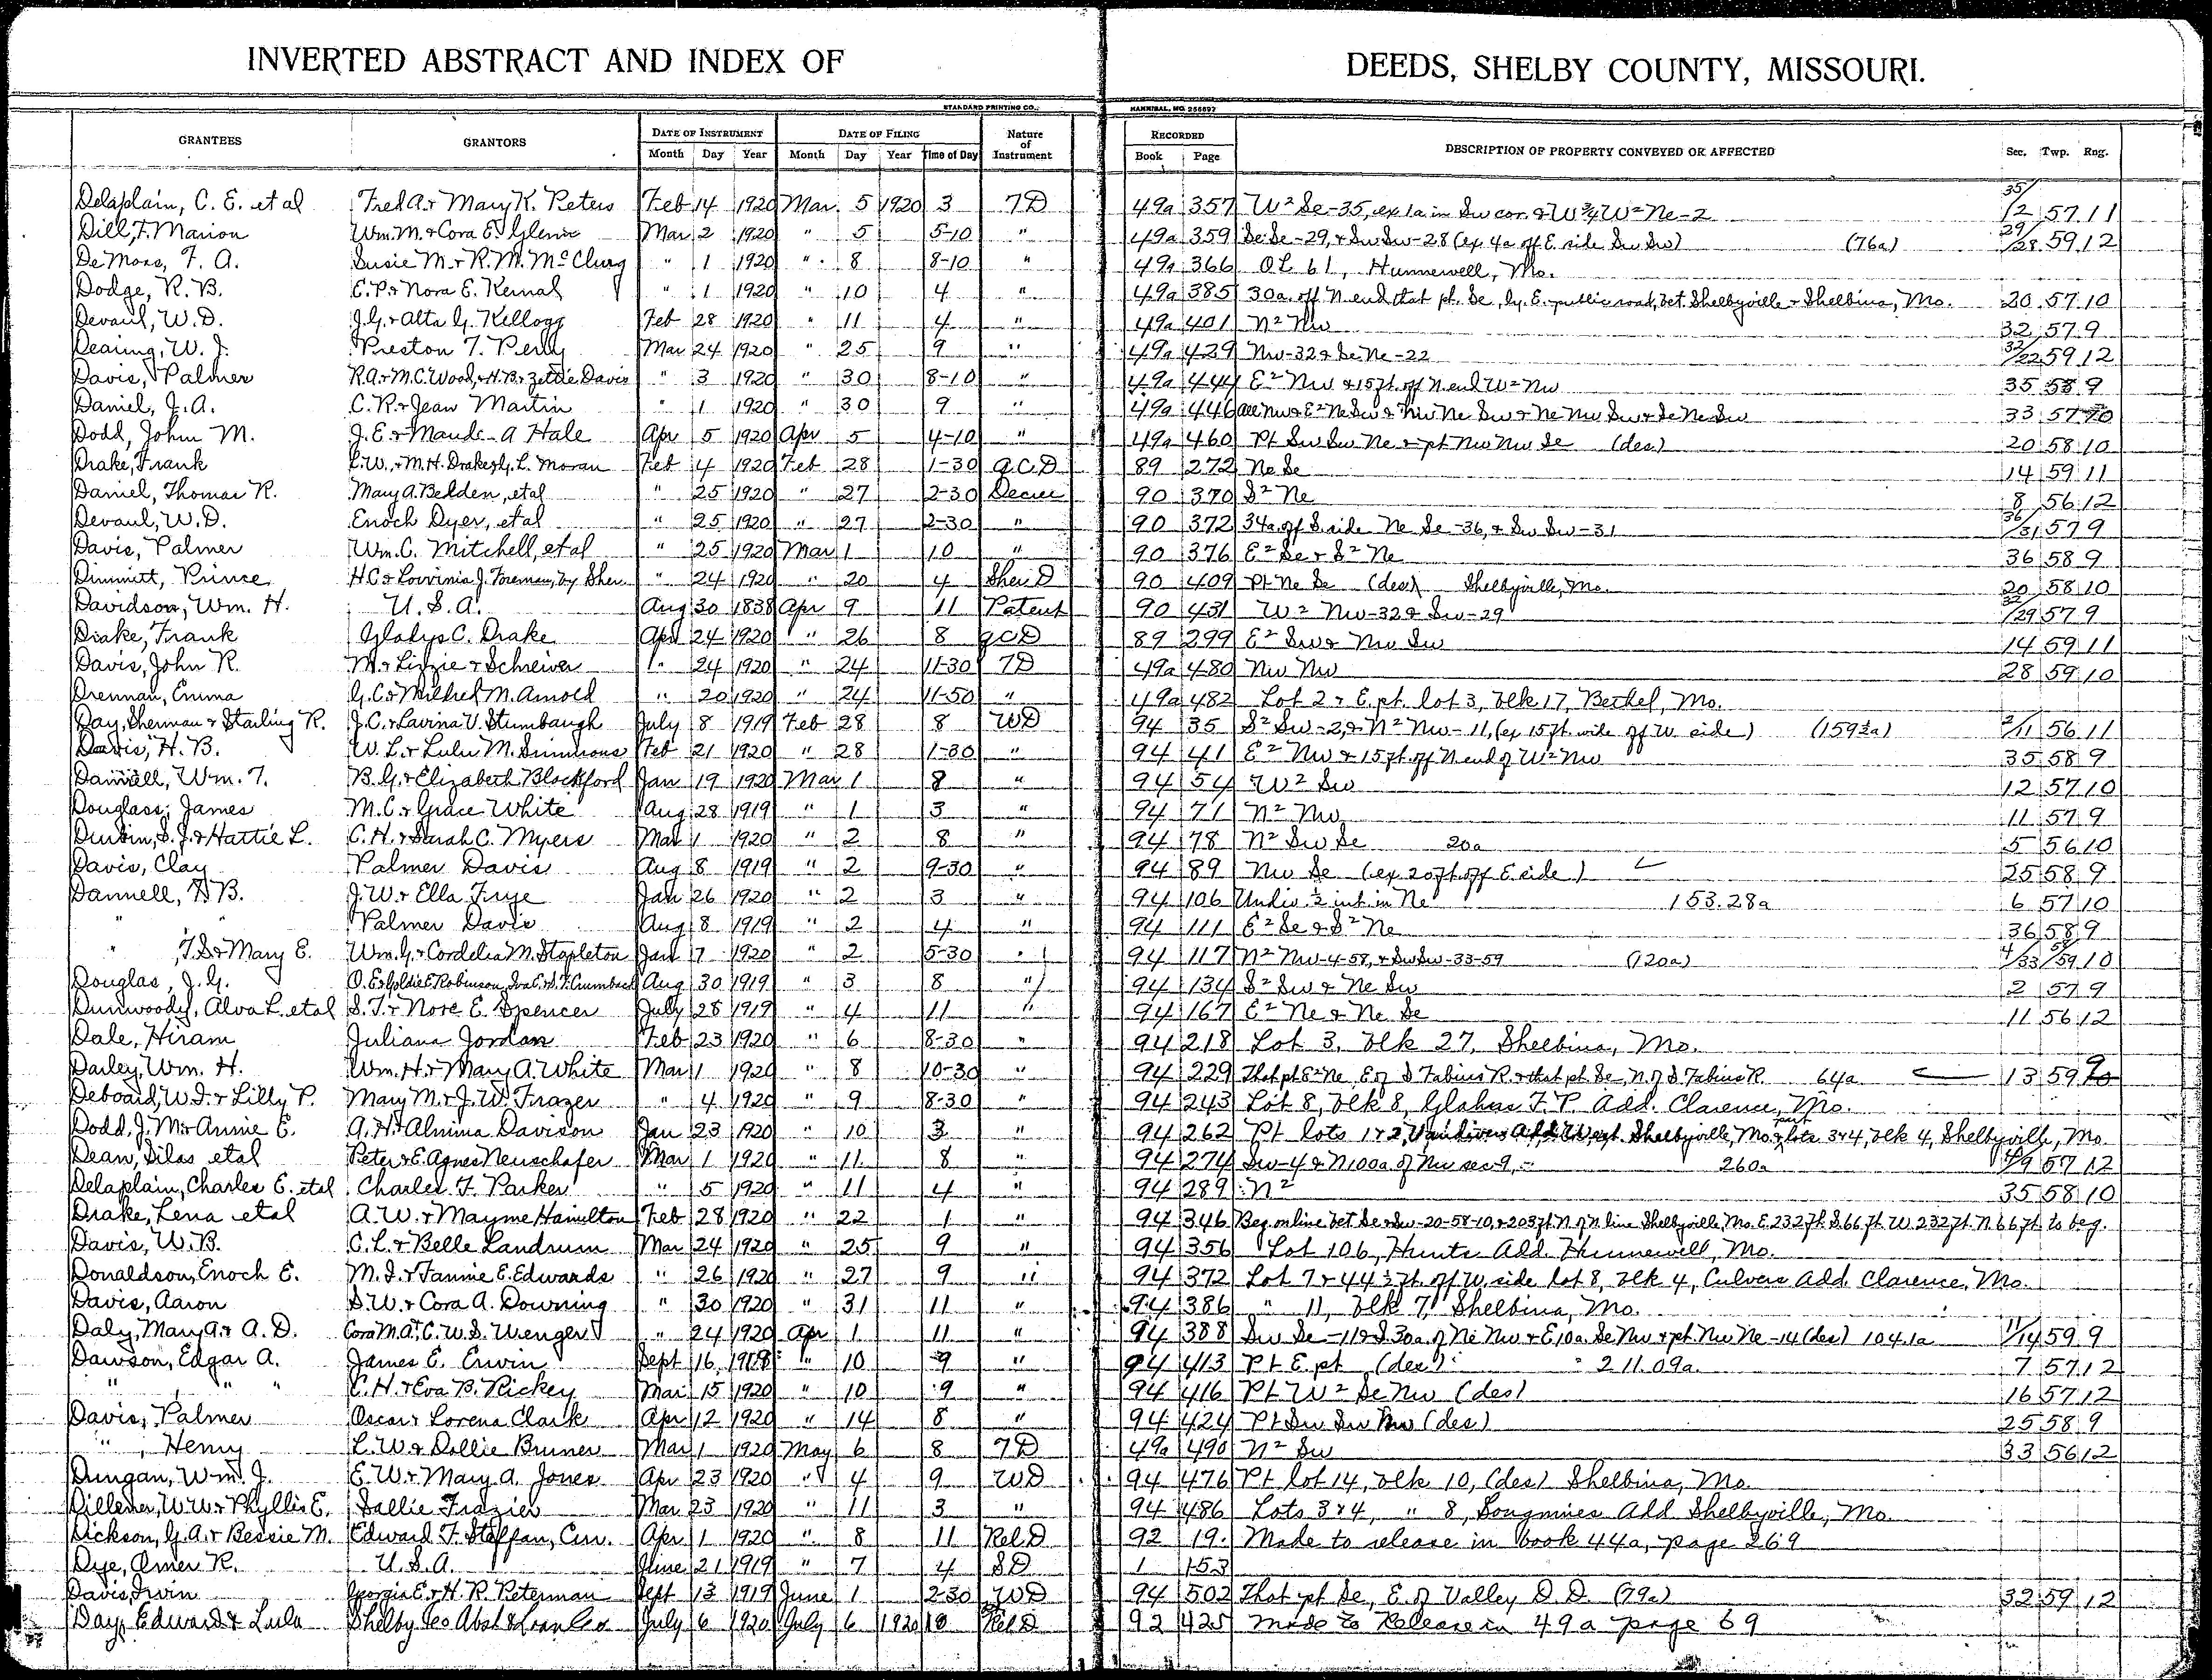 INVERTED ABSTRACT AND INDEX OF DEEDS, SHELBY COUNTY, MISSOURI.
STANDARD PRINTING CO., HANNIBAL, MO. 256897
GRANTEES GRANTORS DATE OF INSTRUMENT DATE OF FILING Nature of Instrument RECORDED DESCRIPTION OF PROPERTY CONVEYED OR AFFECTED Sec. Twp. Rng.
Month Day Year Month Day Year Time of Day Book Page
Delaplain, C. E. et al Fred A. & Mary K. Peters Feb 14 1920 Mar. 5 1920 3 TD 49a 357 W² Se-35, ex 1a in Sw cor. & W¾ W² Ne-2 35/2 57 11
Dill, F. Marion Wm. M. & Cora E. Glenn Mar 2 1920 " 5 5-10 " 49a 359 Se Se-29, & Sw Sw-28 (ex 4a off E side Sw Sw) (76a) 29/28 59 12
DeMoss, F. A. Susie M. & R. M. McClurg " 1 1920 " 8 8-10 " 49a 366 OL 61, Hunnewell, Mo.
Dodge, R. B. E. P. & Nora E. Kernal " 1 1920 " 10 4 " 49a 385 30a. off N end that pt. Se, ly. E. public road, bet. Shelbyville & Shelbina, Mo. 20 57 10
Devaul, W. D. J. G. & Alta G. Kellogg Feb 28 1920 " 11 4 " 49a 401 N² Nw 32 57 9
Dearing, W. J. Preston T. Perry Mar 24 1920 " 25 9 " 49a 429 Nw-32 & Se Ne-22 32/22 59 12
Davis, Palmer R. A. & M. C. Wood, & H. B. & Zettie Davis " 3 1920 " 30 8-10 " 49a 444 E² Nw & 15 ft. off N end W² Nw 35 58 9
Daniel, J. A. C. R. & Jean Martin " 1 1920 " 30 9 " 49a 446 All Nw & E² Ne Sw & Nw Ne Sw & Ne Nw Sw & Se Ne Sw 33 57
Dodd, John M. J. E. & Maude A Hale Apr 5 1920 Apr 5 4-10 " 49a 460 Pt Sw Sw Ne & pt Nw Nw Se (des) 20 58 10
Drake, Frank L. W., & M. H. Drake & G. L. Moran Feb 4 1920 Feb 28 1-30 QCD 89 272 Ne Se 14 59 11
Daniel, Thomas R. Mary A. Belden, et al " 25 1920 " 27 2-30 Decree 90 370 S² Ne 8 56 12
Devaul, W. D. Enoch Dyer, et al " 25 1920 " 27 2-30 " 90 372 34a off S. side Ne Se-36, & Sw Sw-31 36/31 57 9
Davis, Palmer Wm. C. Mitchell, et al " 25 1920 Mar 1 10 " 90 376 E² Se & S² Ne 36 58 9
Dimmitt, Prince H. C. & Lovvinia J. Foreman, by Sher " 24 1920 " 20 4 Sher D 90 409 Pt Ne Se (des) Shelbyville, Mo. 20 58 10
Davidson, Wm. H. U. S. A. Aug 30 1838 Apr 9 11 Patent 90 431 W² Nw-32 & Sw-29 32/29 57 9
Drake, Frank Gladys C. Drake Apr 24 1920 " 26 8 QCD 89 299 E² Sw & Nw Sw 14 59 11
Davis, John R. M. & Lizzie & Schreiver " 24 1920 " 24 11-30 TD 49a 480 Nw Nw 28 59 10
Drennan, Emma G. C. & Mildred M. Arnold " 20 1920 " 24 11-50 " 49a 482 Lot 2 & E. pt. lot 3, blk 17, Bethel, Mo.
Day, Sherman & Starling R. J. C. & Lavina V. Stumbaugh July 8 1919 Feb 28 8 WD 94 35 S² Sw-2, & N² Nw-11, (ex 15 ft. wide off W side) (159½a) 2/11 56 11
Davis, H. B. W. L. & Lulu M. Simmons Feb 21 1920 " 28 1-30 " 94 41 E² Nw & 15 ft. off N end of W² Nw 35 58 9
Daniell, Wm. T. B. G. & Elizabeth Blackford Jan 19 1920 Mar 1 8 " 94 54 W² Sw 12 57 10
Douglass, James M. C. & Grace White Aug 28 1919 " 1 3 " 94 71 N² Nw 11 57 9
Durbin, S. J. & Hattie L. C. H. & Sarah C. Myers Mar 1 1920 " 2 8 " 94 78 N² Sw Se 20a 5 56 10
Davis, Clay Palmer Davis Aug 8 1919 " 2 9-30 " 94 89 Nw Se (ex 20 ft off E side) 25 58 9
Dannell, H. B. J. W. & Ella Frye Jan 26 1920 " 2 3 " 94 106 Undiv ½ int in Ne 153.28a 6 57 10
" " Palmer Davis Aug 8 1919 " 2 4 " 94 111 E² Se & S² Ne 36 58 9
" , T. S. & Mary E. Wm. G. & Cordelia M. Stapleton Jan 7 1920 " 2 5-30 " 94 117 N² Nw-4-58, & Sw Sw-33-59 (120a) 4/33 58/59 10
Douglas, J. G. O. E. & Goldie E Robinson, Iva E. & S. F. Crumback Aug 30 1919 " 3 8 " 94 134 S² Sw & Ne Sw 2 57 9
Dunwoody, Alva L. et al S. T. & Nora E. Spencer July 28 1919 " 4 11 " 94 167 E² Ne & Ne Se 11 56 12
Dale, Hiram Juliana Jordan Feb 23 1920 " 6 8-30 " 94 218 Lot 3, blk 27, Shelbina, Mo.
Darley, Wm. H. Wm. H. & Mary A. White Mar 1 1920 " 8 10-30 " 94 229 That pt E² Ne, E of S Fabius R. & that pt Se, N. of S Fabius R. 64a 13 59 9
Deboard, W. I. & Lilly P. Mary M. & J. W. Frazer " 4 1920 " 9 8-30 " 94 243 Lot 8, blk 8, Glahns F. P. Add. Clarence, Mo.
Dodd, J. M. & Annie E. A. H. & Almina Davison Jan 23 1920 " 10 3 " 94 262 Pt lots 1 & 2, Vandivers Add West. Shelbyville, Mo. & part lots 3 & 4, blk 4, Shelbyville, Mo
Dean, Silas et al Peter & E. Agnes Neuschafer Mar 1 1920 " 11 8 " 94 274 Sw-4 & N100a of Nw sec 9, 260a 4/9 57 12
Delaplain, Charles E. et al Charles F. Parker " 5 1920 " 11 4 " 94 289 N² 35 58 10
Drake, Lena et al A. W. & Mayme Hamilton Feb 28 1920 " 22 1 " 94 346 Beg on line bet Se & Sw-20-58-10, & 203 ft N of N line Shelbyville, Mo. E. 232 ft. S. 66 ft. W. 232 ft. N 66 ft. to beg.
Davis, W. B. C. L. & Belle Landrum Mar 24 1920 " 25 9 " 94 356 Lot 106, Hunts Add. Hunnewell, Mo.
Donaldson, Enoch E. M. I. & Fannie E. Edwards " 26 1920 " 27 9 " 94 372 Lot 7 & 44½ ft. off W. side lot 8, blk 4, Culvers Add. Clarence, Mo.
Davis, Aaron S. W. & Cora A. Downing " 30 1920 " 31 11 " 94 386 " 11, blk 7, Shelbina, Mo.
Daly, Mary A. & A. D. Cora M. & C. W. S. Wenger " 24 1920 Apr 1 11 " 94 388 Sw Se-11 & S. 30a. of Ne Nw & E, 10a. Se Nw & pt. Nw Ne-14 (des) 104.1a 11/14 59 9
Dawson, Edgar A. James E. Erwin Sept 16 1918 " 10 9 " 94 413 Pt E. pt (des) 211.09a. 7 57 12
" , " " C. H. & Eva B. Rickey Mar 15 1920 " 10 9 " 94 416 Pt W² Se Nw (des) 16 57 12
Davis, Palmer Oscar & Lorena Clark Apr 12 1920 " 14 8 " 94 424 Pt Sw Sw Nw (des) 25 58 9
" , Henry L. W. & Dollie Bruner Mar 1 1920 May 6 8 TD 49a 490 N² Sw 33 56 12
Dungan, Wm. J. E. W. & Mary A. Jones Apr 23 1920 " 4 9 WD 94 476 Pt lot 14, blk 10, (des) Shelbina, Mo.
Dillener, W. W. & Phyllis E. Sallie Frazier Mar 23 1920 " 11 3 " 94 486 Lots 3 & 4, " 8, Add Shelbyville, Mo.
Dickson, G. A. & Bessie M. Edward F. Steffan, Cur. Apr 1 1920 " 8 11 Rel D 92 19 Made to release in book 44a, page 269
Dye, Omer R. U. S. A. June 21 1919 " 7 4 SD 1 153
Davis, Irwin Georgia E. & H. R. Peterman Sept 13 1919 June 1 2-30 WD 94 502 That pt Se, E. of Valley D. D. (79a) 32 59 12
Day, Edward & Lula Shelby Co Abst & Loan Co July 6 1920 July 6 1920 10 Rel D 92 425 Made to Release in 49a page 69